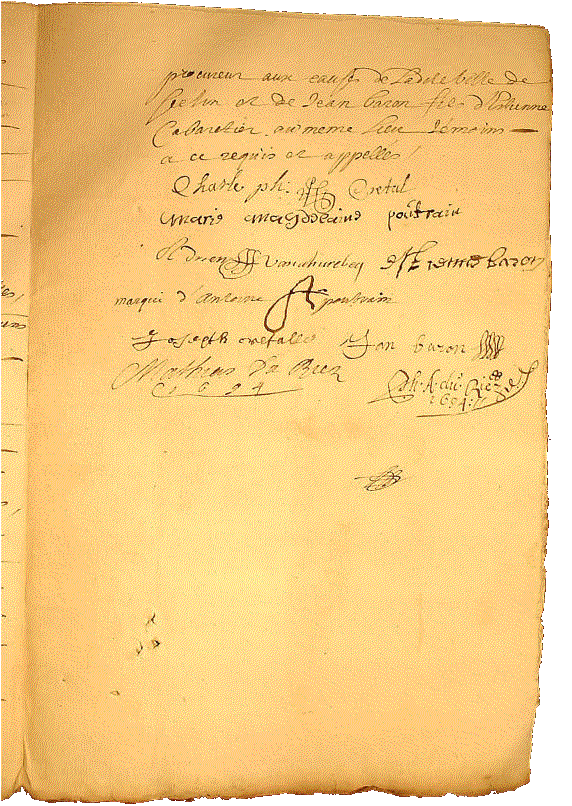 procureur aux causes de Ladite ville de
et de Jean baron fils d'Estienne
Cabaretier au meme lieu témoins
a ce requis et appellés /
Charle ph: Cretal
marie magdelaine poutrain
Adrien vanuxurebeq estienne baron
marque d'Antoine A poutrain
Joseph cretalle Jan baron
Mathias Du Riez
1694
Ph. A. du Riez
1694